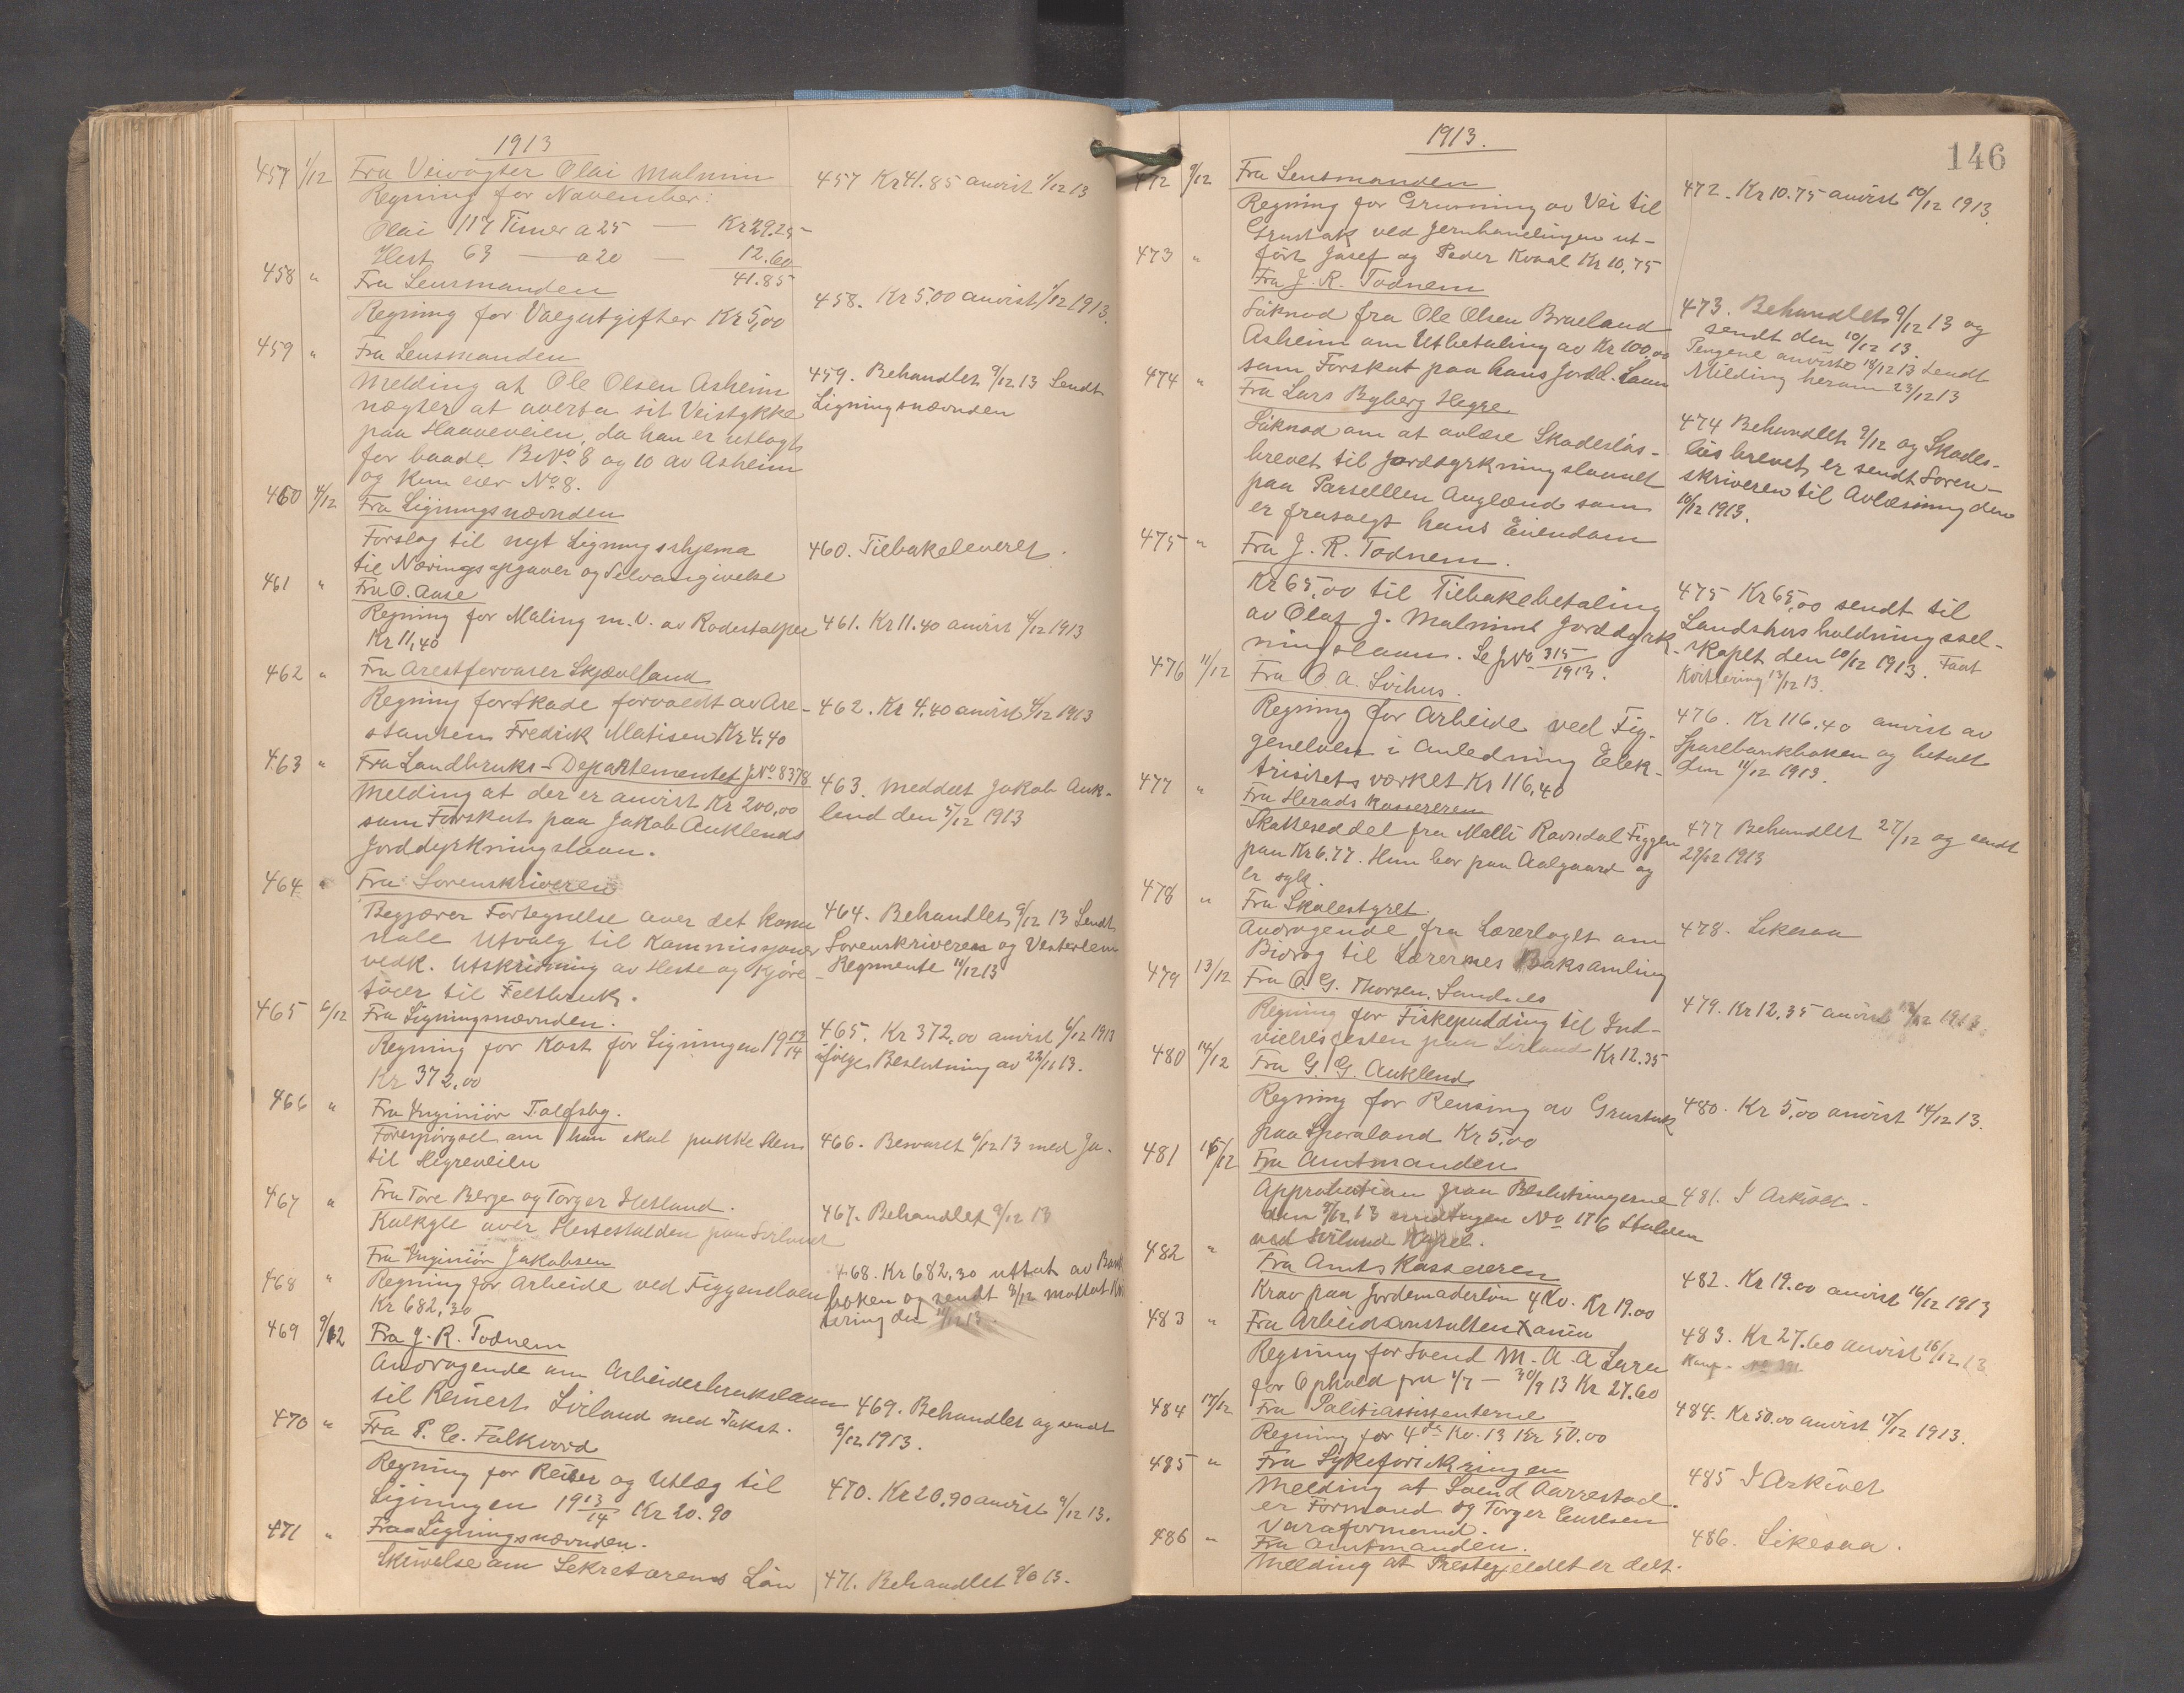 1913
457 1/12 Fra Veivogter Olai Malmin
Regning for November:
Olai 117 Timer a 25 — Kr 29.25
Hest 63 — a 20 — 12.60
41.85
457 Kr 41.85 anvist 1/12 13
458 " Fra Lensmanden
Regning for Valgutgifter Kr 5,00
458. Kr 5.00 anvist 1/12 1913.
459 " Fra Lensmanden
Melding at Ole Olsen Asheim
nægter at overta sit Veistykke
paa Haaveveien, da han er utlagt
for baade BNo. 8 og 10 av Asheim
og kun eier No 8.
459. Behandlet 9/12 13 Sendt
Ligningsnævnden
460 4/12 Fra Ligningsnævnden
Forslag til nyt Ligningsskjema
til Næringsopgaver og Selvangivelse
460. Tilbakeleveret.
461 " Fra O. Aase
Regning for Maling m.v. av Rodestolper
Kr 11,40
461. Kr 11.40 anvist 4/12 1913
462 " Fra Arestforvarer Skjævlland
Regning for Skade forvoldt av Are-
stanten Fredrik Matisen Kr 4,40
462. Kr 4.40 anvist 4/12 1913
463 " Fra Landbruks-Departementet JNo. 8378
Melding at der er anvist Kr 200,00
som Forskut paa Jakob Auklends
Jorddyrkningslaan.
463. Meddelt Jakob Auk-
lend den 5/12 1913
464 " Fra Sorenskriveren
Begjærer Fortegnelse over det komu
nale Utvalg til Kommissjoner
vedk. Utskrivning av Heste og Kjøre
tøier til Feltbruk.
464. Behandlet 9/12 13 Sendt
Sorenskriveren og Vesterlens
Regimente 11/12 13
465 6/12 Fra Ligningsnævnden.
Regning for Kost for Ligningen 19 13/14
Kr 372,00
465. Kr 372,00 anvist 6/12 1913
ifølge Beslutning av 22/11 13.
466 " Fra Ingeniør
Forespørgsel om han skal pukke Sten
til Hegreveien
466. Besvaret 6/12 13 med Ja.
467 " Fra Tore Berge og Torger Hetland.
Kalkyle over Hestestalden paa Svilaud
467. Behandlet 9/12 13
468 " Fra Ingeniør Jakobsen
Regning for Arbeide ved Figgenelven
Kr 682,30
468. Kr 682.30 uttat av Bank
boken og sendt 8/12 Mottat Kvi
tering den 11/12 13.
469 9/12 Fra J. R. Todnem
Andragende om Arbeiderbrukslaan
til Reinert Sviland med Takst.
469. Behandlet og sendt
9/12 1913.
470 " Fra P. C. Falkvord
Regning for Reiser og Utlæg til
Ligningen 19 13/14 Kr 20.90
470. Kr 20,90 anvist 9/12 13.
471 " Fra Ligningsnævnden.
Skrivelse om Sekretærens Løn
471. Behandlet
1913.
146
472 9/12 Fra Lensmanden
Regning for Grusning av Vei til
Grustak ved Jernhandlingen ut-
ført Josef og Peder Kvaal Kr 10,75
472. Kr 10.75 anvist 10/12 1913
473 " Fra J. R. Todnem
Søknad fra Ole Olsen Braeland
Asheim om Utbetaling av Kr 100,00
som Forskut paa hans Jordd. Laan
473. Behandlet 9/12 13 og
sendt den 10/12 13.
Pengene anvist 18/12 13 Sendt
Melding herom 23/12 13
474 " Fra Lars Byberg Hegre
Søknad om at avlæse Skadesløs-
brevet til Jorddyrkningslaanet
paa Parsellen Auglænd som
er frasolgt hans Eiendom
474 Behandlet 9/12 og Skades-
løsbrevet er sendt Soren-
skriveren til Avlæsning den
10/12 1913.
475 " Fra J. R. Todnem.
Kr 65,00 til Tilbakebetaling
av Olaf J. Malmins Jorddyrk-
ningslaan. Se JNo 315/1913.
475 Kr 65,00 sendt til
Landshusholdningssel-
skapet den 10/12 1913. Faat
Kvittering 13/12 13.
476 11/12 Fra O. A. Svihus.
Regning for Arbeide ved Fig-
genelven i Anledning Elek-
trisitetsværket Kr 116,40
476. Kr 116.40 anvist av
Sparebankboken og betalt
den 11/12 1913.
477 " Fra Heradskassereren
Skatteseddel fra Malli Ravndal Figgen
paa Kr 6.77. Hun bor paa Aalgaard og
er syk.
477 Behandlet 27/12 og sendt
29/12 1913
478 " Fra Skolestyret.
Andragende fra Lærerlaget om
Bidrag til Lærernes Boksamling
478. Likesaa
479 13/12 Fra O. G. Thorsen, Sandnes
Regning for Fiskepudding til Ind-
vielsesfesten paa Sviland Kr 12.35
479. Kr 12,35 anvist 13/12 1913.
480 14/12 Fra G. G. Auklend
Regning for Rensing av Grustak
paa Kr 5,00
480. Kr 5,00 anvist 14/12 13.
481 15/12 Fra Amtmanden
Approbation paa Beslutningerne
den 9/12 13 undtagen No 176 Stalden
ved Sviland Kapel.
481. I Arkivet.
482 " Fra Amtskassereren
Krav paa Jordemoderløn 4 Kv. Kr 19.00
482. Kr 19.00 anvist 16/12 1913
483 " Fra Arbeidsanstalten
Regning for Svend M. A. A
for Ophold fra 1/7 — 30/9 13 Kr 27.60
483. Kr 27.60 anvist 16/12 13
484 17/12 Fra Politiassistenterne
Regning for 4de Kv. 13 Kr 50.00
484. Kr 50.00 anvist 17/12 1913.
485 " Fra Sykeforsikringen
Melding at Svend Aarrestad
er Formand og Torger
Varaformand.
485 I Arkivet
486 " Fra Amtmanden.
Melding at Prestegjeldet er delt.
486. Likesaa.